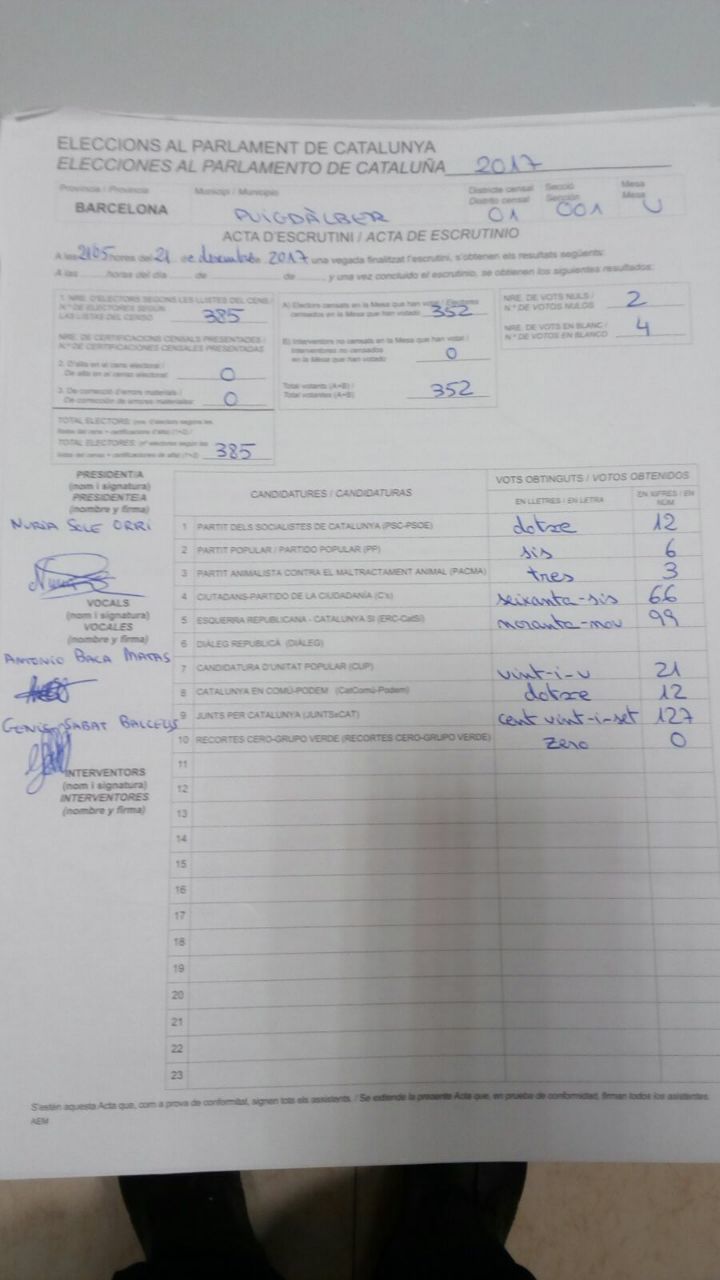 ELECCIONS AL PARLAMENT DE CATALUNYA
ELECCIONES AL PARLAMENTO DE CATALUÑA 2017
Provincia / Provincia Municipi / Municipio Districte censal Secció Mesa
Distrito censal Sección Mesa
BARCELONA PUIGDÀLBER 01 001 U
ACTA D'ESCRUTINI / ACTA DE ESCRUTINIO
A les 21:05 hores del 21 de desembre 2017 una vegada finalitzat l'escrutini, s'obtenen els resultats següents:
A las horas del día de de , y una vez concluido el escrutinio, se obtienen los siguientes resultados:
1. NRE. D'ELECTORS SEGONS LES LLISTES DEL CENS /
N.º DE ELECTORES SEGÚN
LAS LISTAS DEL CENSO 385
NRE. DE CERTIFICACIONS CENSALS PRESENTADES /
N.º DE CERTIFICACIONES CENSALES PRESENTADAS
2. D'alta en el cens electoral /
De alta en el censo electoral: 0
3. De correcció d'errors materials /
De corrección de errores materiales: 0
TOTAL ELECTORS:
TOTAL ELECTORES: 385
A) Electors censats en la Mesa que han votat / Electores
censados en la Mesa que han votado 352
B) Interventors no censats en la Mesa que han votat /
Interventores no censados
en la Mesa que han votado 0
Total votants (A+B) /
Total votantes (A+B) 352
NRE. DE VOTS NULS /
N.º DE VOTOS NULOS 2
NRE. DE VOTS EN BLANC /
N.º DE VOTOS EN BLANCO 4
PRESIDENT/A
(nom i signatura)
PRESIDENTE/A
(nombre y firma)
NURIA SOLE ORRI
VOCALS
(nom i signatura)
VOCALES
(nombre y firma)
ANTONIO BACA MATAS
GENIS SABAT BALCELLS
INTERVENTORS
(nom i signatura)
INTERVENTORES
(nombre y firma)
CANDIDATURES / CANDIDATURAS VOTS OBTINGUTS / VOTOS OBTENIDOS
EN LLETRES / EN LETRA EN XIFRES / EN NÚM.
1 PARTIT DELS SOCIALISTES DE CATALUNYA (PSC-PSOE) dotze 12
2 PARTIT POPULAR / PARTIDO POPULAR (PP) sis 6
3 PARTIT ANIMALISTA CONTRA EL MALTRACTAMENT ANIMAL (PACMA) tres 3
4 CIUTADANS-PARTIDO DE LA CIUDADANÍA (C's) seixanta-sis 66
5 ESQUERRA REPUBLICANA - CATALUNYA SI (ERC-CatSí) noranta-nou 99
6 DIÀLEG REPUBLICÀ (DIÀLEG)
7 CANDIDATURA D'UNITAT POPULAR (CUP) vint-i-u 21
8 CATALUNYA EN COMÚ-PODEM (CatComú-Podem) dotze 12
9 JUNTS PER CATALUNYA (JUNTSxCAT) cent vint-i-set 127
10 RECORTES CERO-GRUPO VERDE (RECORTES CERO-GRUPO VERDE) zero 0
11
12
13
14
15
16
17
18
19
20
21
22
23
S'estén aquesta Acta que, com a prova de conformitat, signen tots els assistents. / Se extiende la presente Acta que, en prueba de conformidad, firman todos los asistentes.
AEM